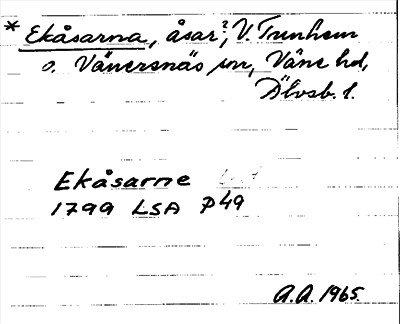 * Ekåsarna, åsar?, V. Tunhem
o. Vänersnäs snr, Väne hd,
Älvsb. l.
Ekåsarne
1799 LSA P49
A.A. 1965